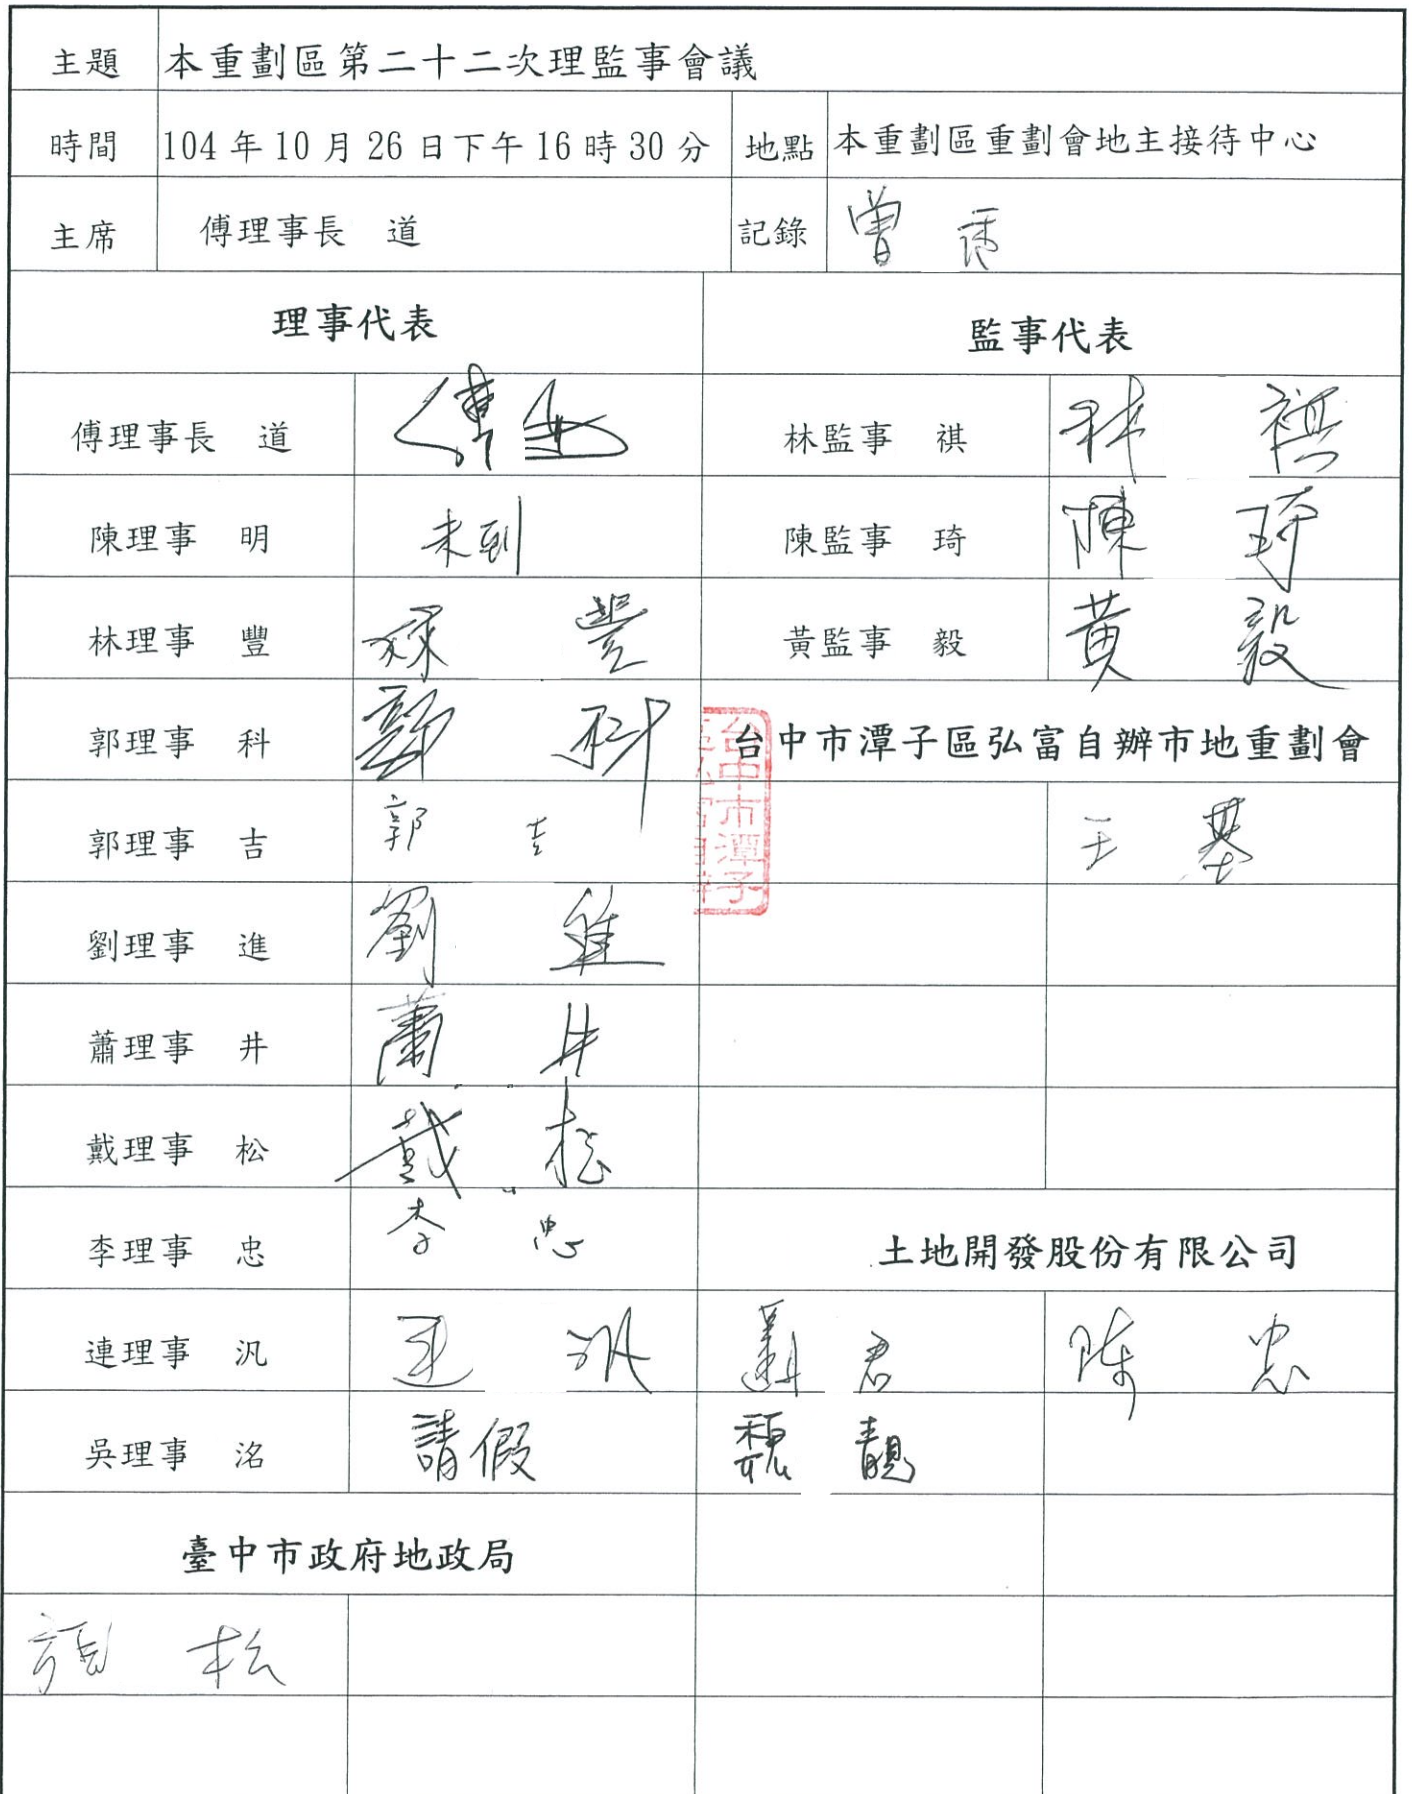 主題 本重劃區第二十二次理監事會議
時間 104年10月26日下午16時30分 地點 本重劃區重劃會地主接待中心
主席 傅理事長 道 記錄 曾
理事代表 監事代表
傅理事長 道 傅道 林監事 祺 林 祺
陳理事 明 未到 陳監事 琦 陳 琦
林理事 豐 林 豐 黃監事 毅 黃 毅
郭理事 科 郭 科 台中市潭子區弘富自辦市地重劃會
台中市潭子
郭理事 吉 郭 吉 王 基
劉理事 進 劉 進
蕭理事 井 蕭 井
戴理事 松 戴 松
李理事 忠 李 忠 土地開發股份有限公司
連理事 汎 連 汎 蕭 君 陳 忠
吳理事 洺 請假 魏 靚
臺中市政府地政局
松